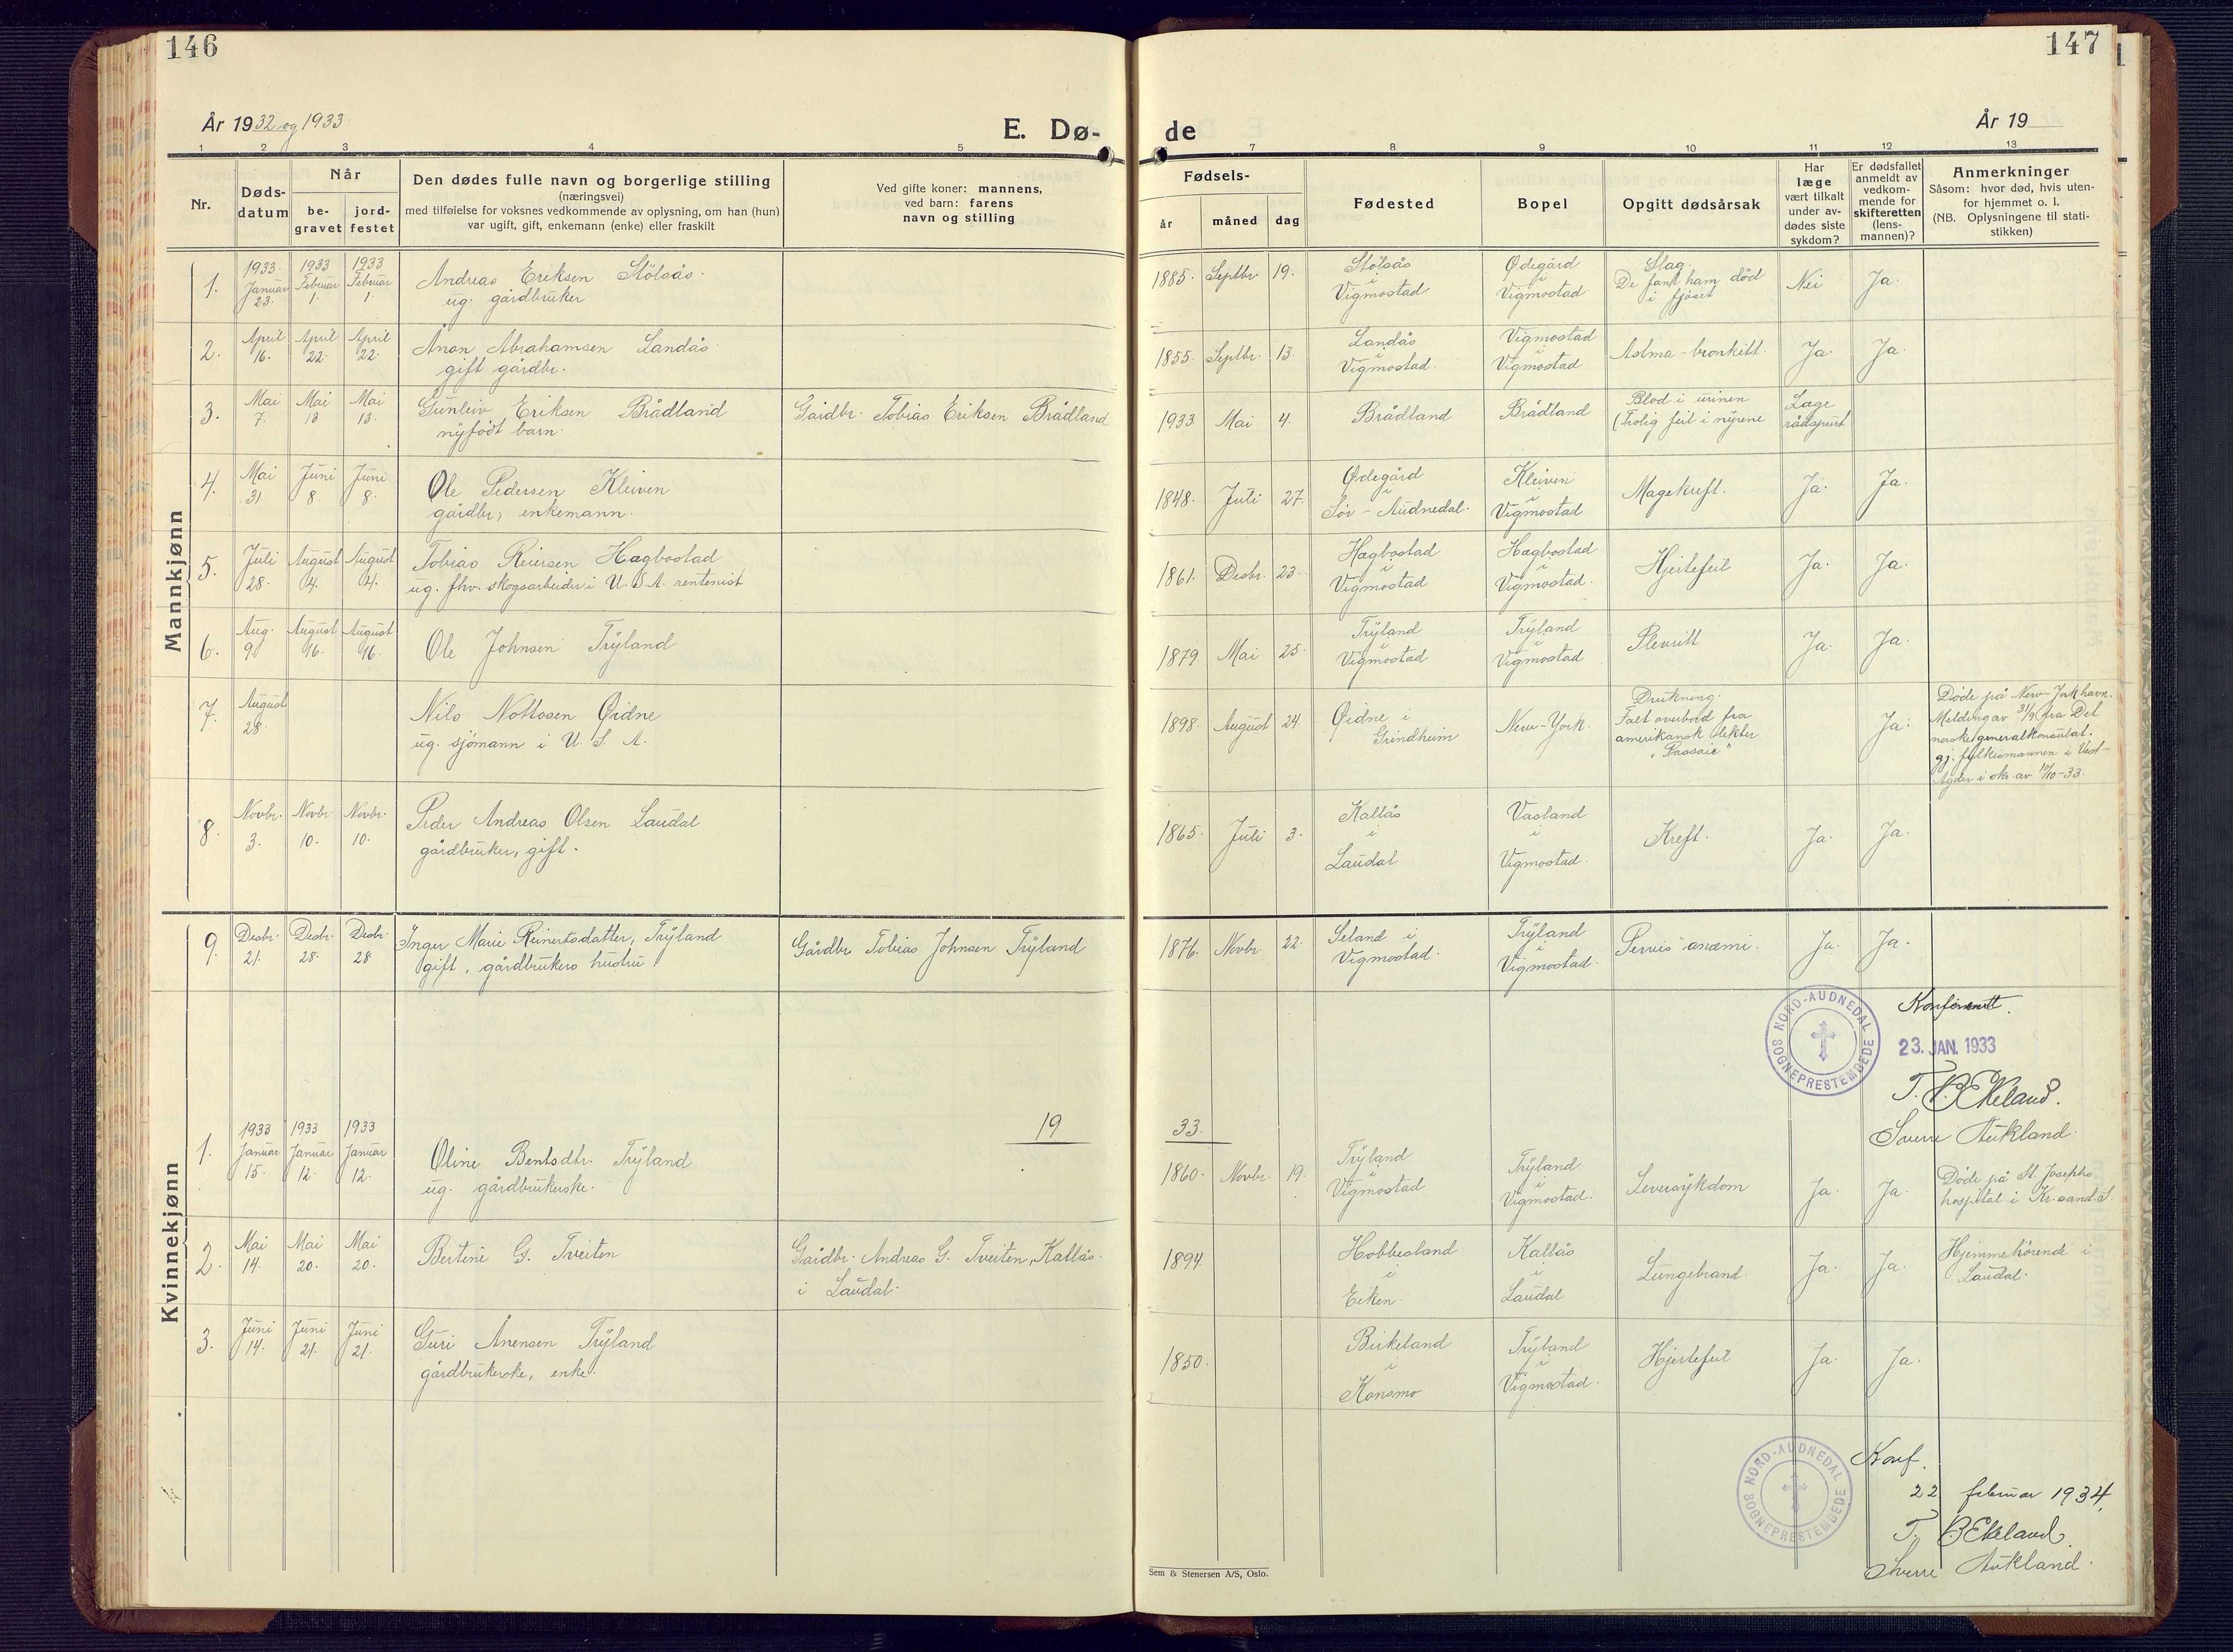 146
147
År 1932 og 1933
E. Dø-
de
År 19
1 2 3 4 5
7 8 9 10 11 12 13
Nr.
Døds-
datum
Når
be-
gravet
jord-
festet
Den dødes fulle navn og borgerlige stilling
(næringsvei)
med tilføielse for voksnes vedkommende av oplysning, om han (hun)
var ugift, gift, enkemann (enke) eller fraskilt
Ved gifte koner: mannens,
ved barn: farens
navn og stilling
Fødsels-
år måned dag
Fødested
Bopel
Opgitt dødsårsak
Har
læge
vært tilkalt
under av-
dødes siste
sykdom?
Er dødsfallet
anmeldt av
vedkom-
mende for
skifteretten
(lens-
mannen)?
Anmerkninger
Såsom: hvor død, hvis uten-
for hjemmet o. l.
(NB. Oplysningene til stati-
stikken)
Mannkjønn
1. 1933. Januar 23. 1933 Februar 1. 1933 Februar 1.
Andreas Eriksen Stölsås.
ug. gårdbruker
1885. Septbr. 19.
Stölsås
i
Vigmostad
Ødegård
i
Vigmostad
Slag.
De fant ham död
i fjöset
Nei
Ja.
2. April 16. April 22. April 22.
Ånon Abrahamsen Landås
gift gårdbr.
1855. Septbr. 13.
Landås
i
Vigmostad.
Vigmostad
i
Vigmostad
Astma-bronkitt.
Ja.
Ja.
3. Mai 7. Mai 13 Mai 13.
Gunleiv Eriksen Brådland
nyfödt barn.
Gårdbr. Tobias Eriksen Brådland
1933 Mai 4.
Brådland
Brådland
Blod i urinen
(Trolig feil i nyrene
Læge
rådspurt
4. Mai 31. Juni 8. Juni 8.
Ole Pedersen Kleiven
gårdbr; enkemann.
1848. Juli 27.
Ødegård
i
Sör-Audnedal.
Kleiven
i
Vigmostad
Magekreft.
Ja.
Ja.
5. Juli 28. August 4. August 4.
Tobias Reiersen Hægbostad
ug. fhv. skogsarbeider i U.S.A. rentenist
1861. Desbr. 23.
Hægbostad
i
Vigmostad
Hægbostad
i
Vigmostad.
Hjertefeil
Ja.
Ja.
6. Aug. 9. August 16. August 16.
Ole Johnsen Tryland
1879. Mai 25.
Tryland
i
Vigmostad
Tryland
i
Vigmostad
Plevritt
Ja.
Ja.
7. August 28.
Nils Nottosen Øidne
ug. sjömann i U. S. A.
1898. August 24.
Øidne i
Grindheim
New-York.
Drukning.
Falt overbord fra
amerikansk lekter
"Passaic"
Ja.
Döde på New-York havn.
Melding av 31/9 fra Det
norske generalkonsulat.
gj. fylkesmannen i Vest-
Agder i skr. av 10/10-33.
8. Novbr. 3. Novbr. 10. Novbr. 10.
Peder Andreas Olsen Laudal
gårdbruker, gift.
1865. Juli 3.
Kallås
i
Laudal
Vasland
i
Vigmostad.
Kreft.
Ja.
Ja.
9. Desbr. 21. Desbr. 28. Desbr. 28
Inger Marie Reinertsdatter, Tryland
gift, gårdbrukers hustru
Gårdbr. Tobias Johnsen Tryland
1876. Novbr. 22.
Seland i
Vigmostad.
Tryland
i
Vigmostad.
Pernis anæmi.
Ja.
Ja.
NORD-AUDNEDAL SOGNEPRESTEMBEDE
Konferert.
23. JAN. 1933
T. B. Ekeland.
Sverre Aukland.
19
33.
Kvinnekjønn
1. 1933 Januar 15. 1933 Januar 12. 1933 Januar 12.
Oline Bentsdtr. Tryland
ug. gårdbrukerske.
1860. Novbr. 19.
Tryland
i
Vigmostad
Tryland
i
Vigmostad.
Leversykdom
Ja.
Ja.
Döde på St. Josephs
hospital i Kr.sand.S.
2. Mai 14. Mai 20. Mai 20.
Bertine G. Tveiten
Gårdbr. Andreas G. Tveiten, Kallås.
i Laudal.
1894.
Hobbesland
i
Eiken.
Kallås
i
Laudal
Lungebrand.
Ja.
Ja.
Hjemmehörende i
Laudal.
3. Juni 14. Juni 21. Juni 21.
Guri Ånensen Tryland
gårdbrukerske, enke.
1850.
Birkeland
i
Konsmo
Tryland
i
Vigmostad.
Hjertefeil
Ja.
Ja.
NORD-AUDNEDAL SOGNEPRESTEMBEDE
Konf.
22 februar 1934,
T. B. Ekeland.
Sverre Aukland.
Sem & Stenersen A/S, Oslo.